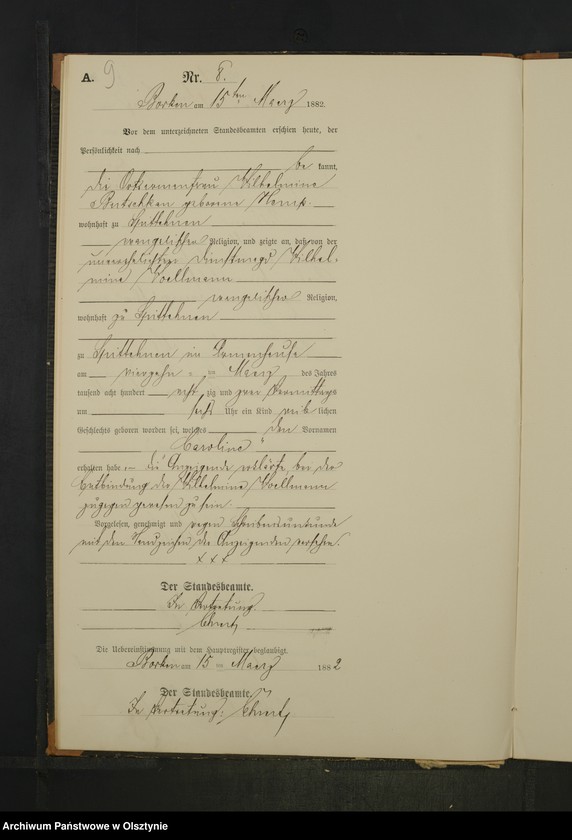 A. 9 Nr. 8.
Borken am 15ten Maerz 1882.
Vor dem unterzeichneten Standesbeamten erschien heute, der
Persönlichkeit nach
be kannt,
die Wilhelmine
geborene
wohnhaft zu
evangelischer Religion, und zeigte an, daß von der
unverehelichten Dienstmagd Wilhel-
mine
evangelischer Religion,
wohnhaft zu
zu im
am vierzehn ten Maerz des Jahres
tausend acht hundert acht zig und zwei Vormittags
um sechs Uhr ein Kind weib lichen
Geschlechts geboren worden sei, welches den Vornamen
Caroline
erhalten habe. Die Anzeigende erklärte, bei der
Entbindung der Wilhelmine
zugegen gewesen zu sein.
Vorgelesen, genehmigt und wegen Schreibensunkunde
mit dem Handzeichen der Anzeigenden versehen.
x x x
Der Standesbeamte.
In Vertretung
Die Uebereinstimmung mit dem Hauptregister beglaubigt.
Borken am 15 ten Maerz 1882
Der Standesbeamte.
In Vertretung:
Archiwum Państwowe w Olsztynie